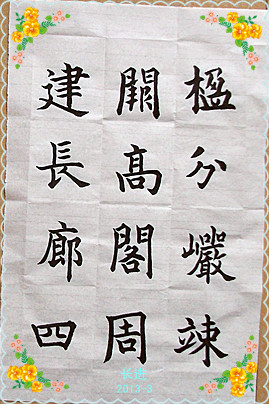 楹分巖竦
闕高閣周
建長廊四
2013-3